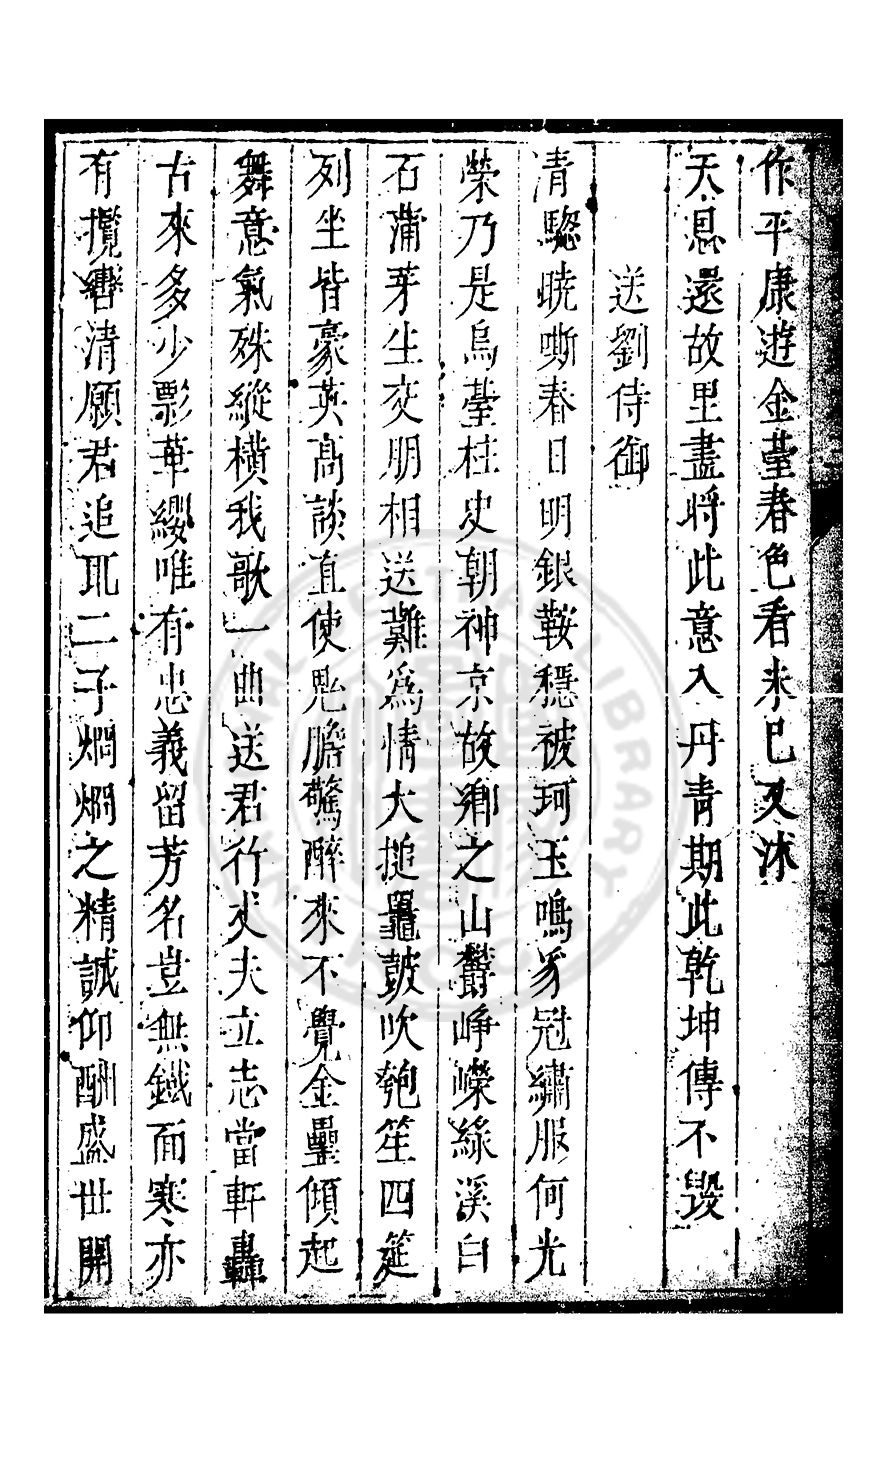 作平康遊金臺春色看未已又沐
天恩還故里盡將此意入丹青期此乾坤傳不毀
送劉侍御
清驄曉嘶春日明銀鞍穩被珂玉鳴豸冠繡服何光
榮乃是烏臺柱史朝神京故鄉之山鬱崢嶸綠溪白
石蒲芽生交朋相送難為情大搥鼉鼓吹匏笙四筵
列坐皆豪英高談直使鬼膽驚醉來不覺金罍傾起
舞意氣殊縱橫我歌一曲送君行丈夫立志當軒轟
古來多少影華纓唯有忠義留芳名豈無鐵面寒亦
有攬轡清願君追配二子炯炯之精誠仰酬盛世開